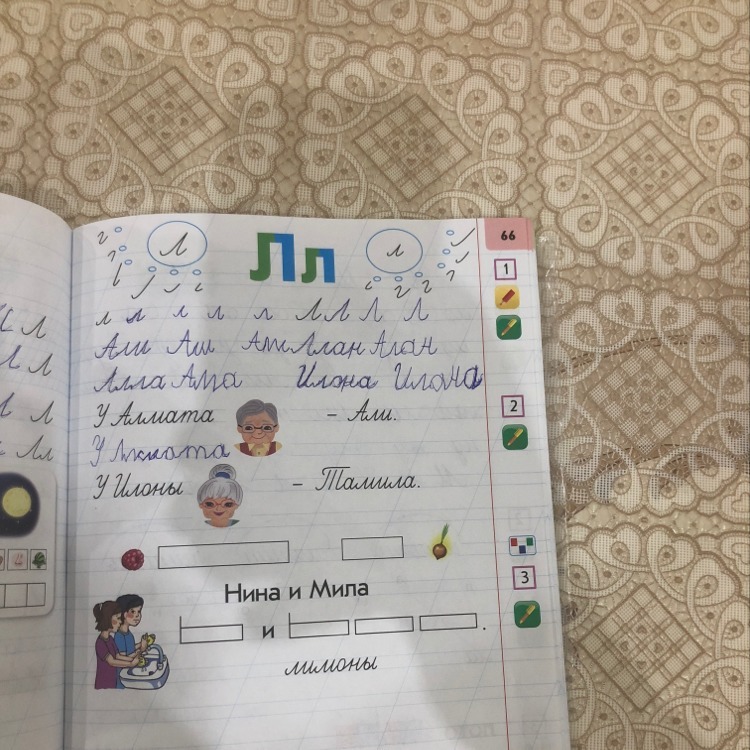 Л Лл л
66
1
л л л л л Л Л Л Л
Али Али Али Алан Алан
Алла Алла Илона Илона
2
У Алмата – Али.
У Алмата
У Илоны – Тамила.
3
Нина и Мила
и .
лимоны
Л
Л
Л
Лл